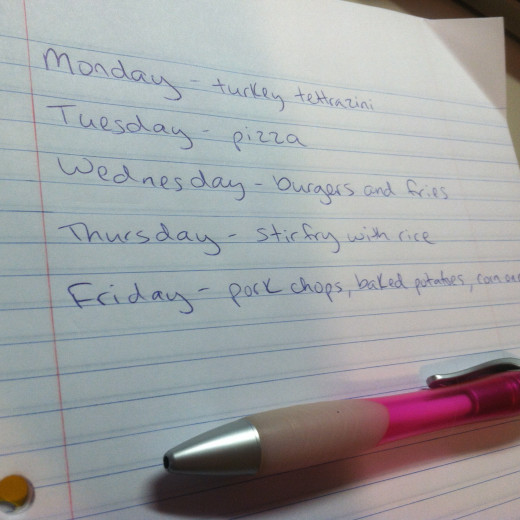 Monday - turkey tettrazini
Tuesday - pizza
Wednesday - burgers and fries
Thursday - stirfry with rice
Friday - pork chops, baked potatoes, corn